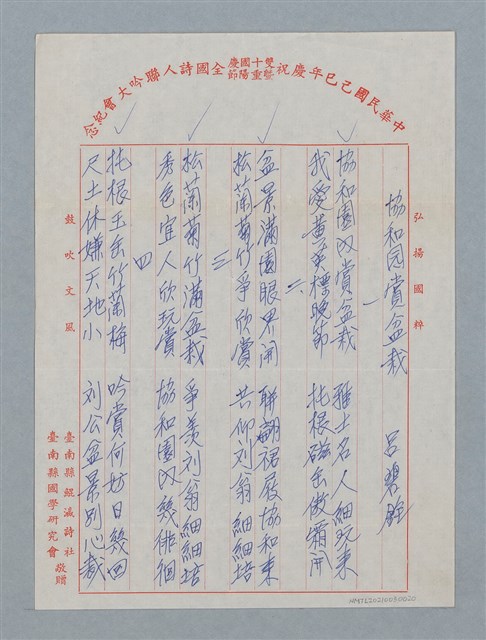 中華民國己巳年慶祝雙十國慶暨重陽節全國詩人聯吟大會紀念
弘揚國粹
協和园賞盆栽 呂碧銓
一
協和園内賞盆栽 雅士名人細玩來
我爱黃英標晚節 托根磁缶傲霜開
二
盆景滿園眼界開 聯翩裙屐協和來
松蘭菊竹爭欣賞 共仰刘翁細細培
三
松蘭菊竹滿盆栽 爭羨刘翁細細培
秀色宜人欣玩賞 協和園内幾徘徊
四
托根玉缶竹蘭梅 吟賞何妨日幾回
尺土休嫌天地小 刘公盆景别心裁
鼓吹文風
臺南縣鯤瀛詩社
臺南縣國學研究會 敬贈
NMTL20210080020